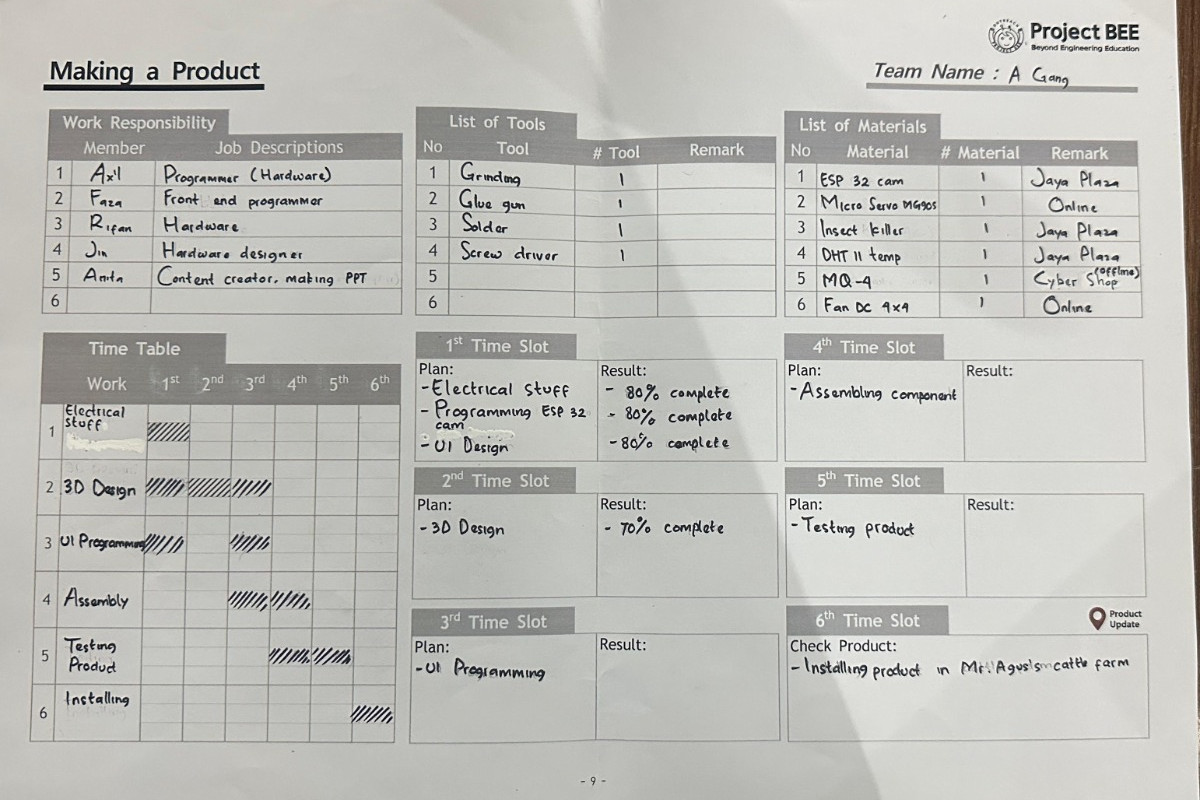 Project BEE
Beyond Engineering Education
Making a Product
Team Name : A Gang
Work Responsibility
Member Job Descriptions
1 Axil Programmer (Hardware)
2 Faza Front end programmer
3 Rifan Hardware
4 Jin Hardware designer
5 Anita Content creator, making PPT
6
List of Tools
No Tool # Tool Remark
1 Grinding 1
2 Glue gun 1
3 Solder 1
4 Screw driver 1
5
6
List of Materials
No Material # Material Remark
1 ESP 32 cam 1 Jaya Plaza
2 Micro Servo MG90S 1 Online
3 Insect killer 1 Jaya Plaza
4 DHT 11 temp 1 Jaya Plaza
5 MQ-4 1 Cyber Shop (offline)
6 Fan DC 4x4 1 Online
Time Table
Work 1st 2nd 3rd 4th 5th 6th
1 Electrical
stuff
2 3D Design
3 UI Programming
4 Assembly
5 Testing
Product
6 Installing
1st Time Slot
Plan:
- Electrical stuff
- Programming ESP 32
cam
- UI Design
Result:
- 80% complete
- 80% complete
- 80% complete
2nd Time Slot
Plan:
- 3D Design
Result:
- 70% complete
3rd Time Slot
Plan:
- UI Programming
Result:
4th Time Slot
Plan:
- Assembling component
Result:
5th Time Slot
Plan:
- Testing product
Result:
6th Time Slot
Product
Update
Check Product:
- Installing product in Mr. Agus's cattle farm
- 9 -